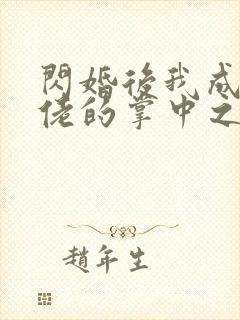 閃婚後我成
佬的掌中之
趙年生